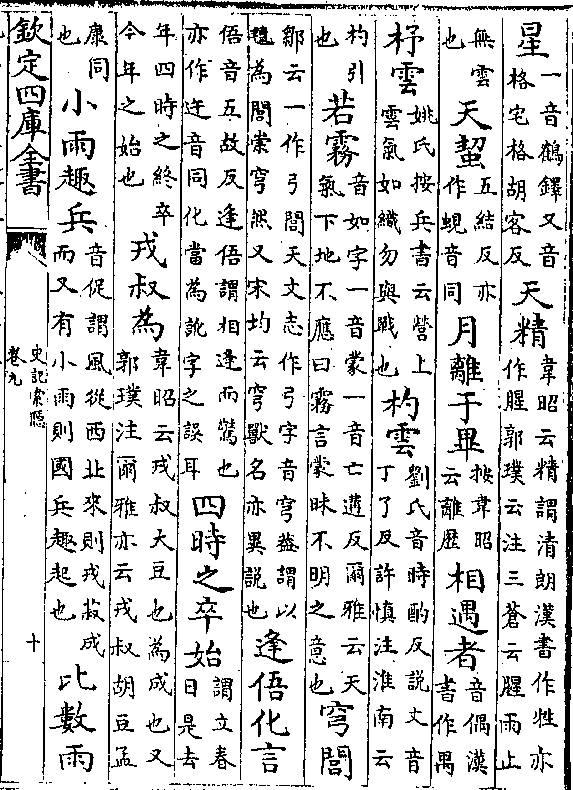 星一音鶴鐸又音格宅格胡客反天精韋昭云精謂清朗漢書作甠亦作腥郭璞云注三蒼云腥雨止
無雲也天蛪五結反亦作蜺音同月離于畢按韋昭云離歷相遇者音偶漢書作禺
杼雲姚氏按兵書云營上雲氣如織勿與戰也杓雲劉氏音時酌反説文音丁了反許慎注淮南云
杓引也若霧音如字一音蒙一音亡遘反爾雅云天氣下地不應曰霧言蒙昧不明之意也穹閭
鄒云一作弓閭天文志作弓字音穹蓋謂以氊為閭崇穹然又宋均云穹獸名亦異説也逢俉化言
俉音五故反逢俉謂相逢而驚也亦作迕音同化當為訛字之誤耳四時之卒始謂立春日是去
年四時之終卒今年之始也戎叔為韋昭云戎叔大豆也為成也又郭璞注爾雅亦云戎叔胡豆孟
康同也小雨趣兵音促謂風從西北來則戎菽成而又有小雨則國兵趣起也比數雨
欽定四庫全書
史記索隱
卷九
十